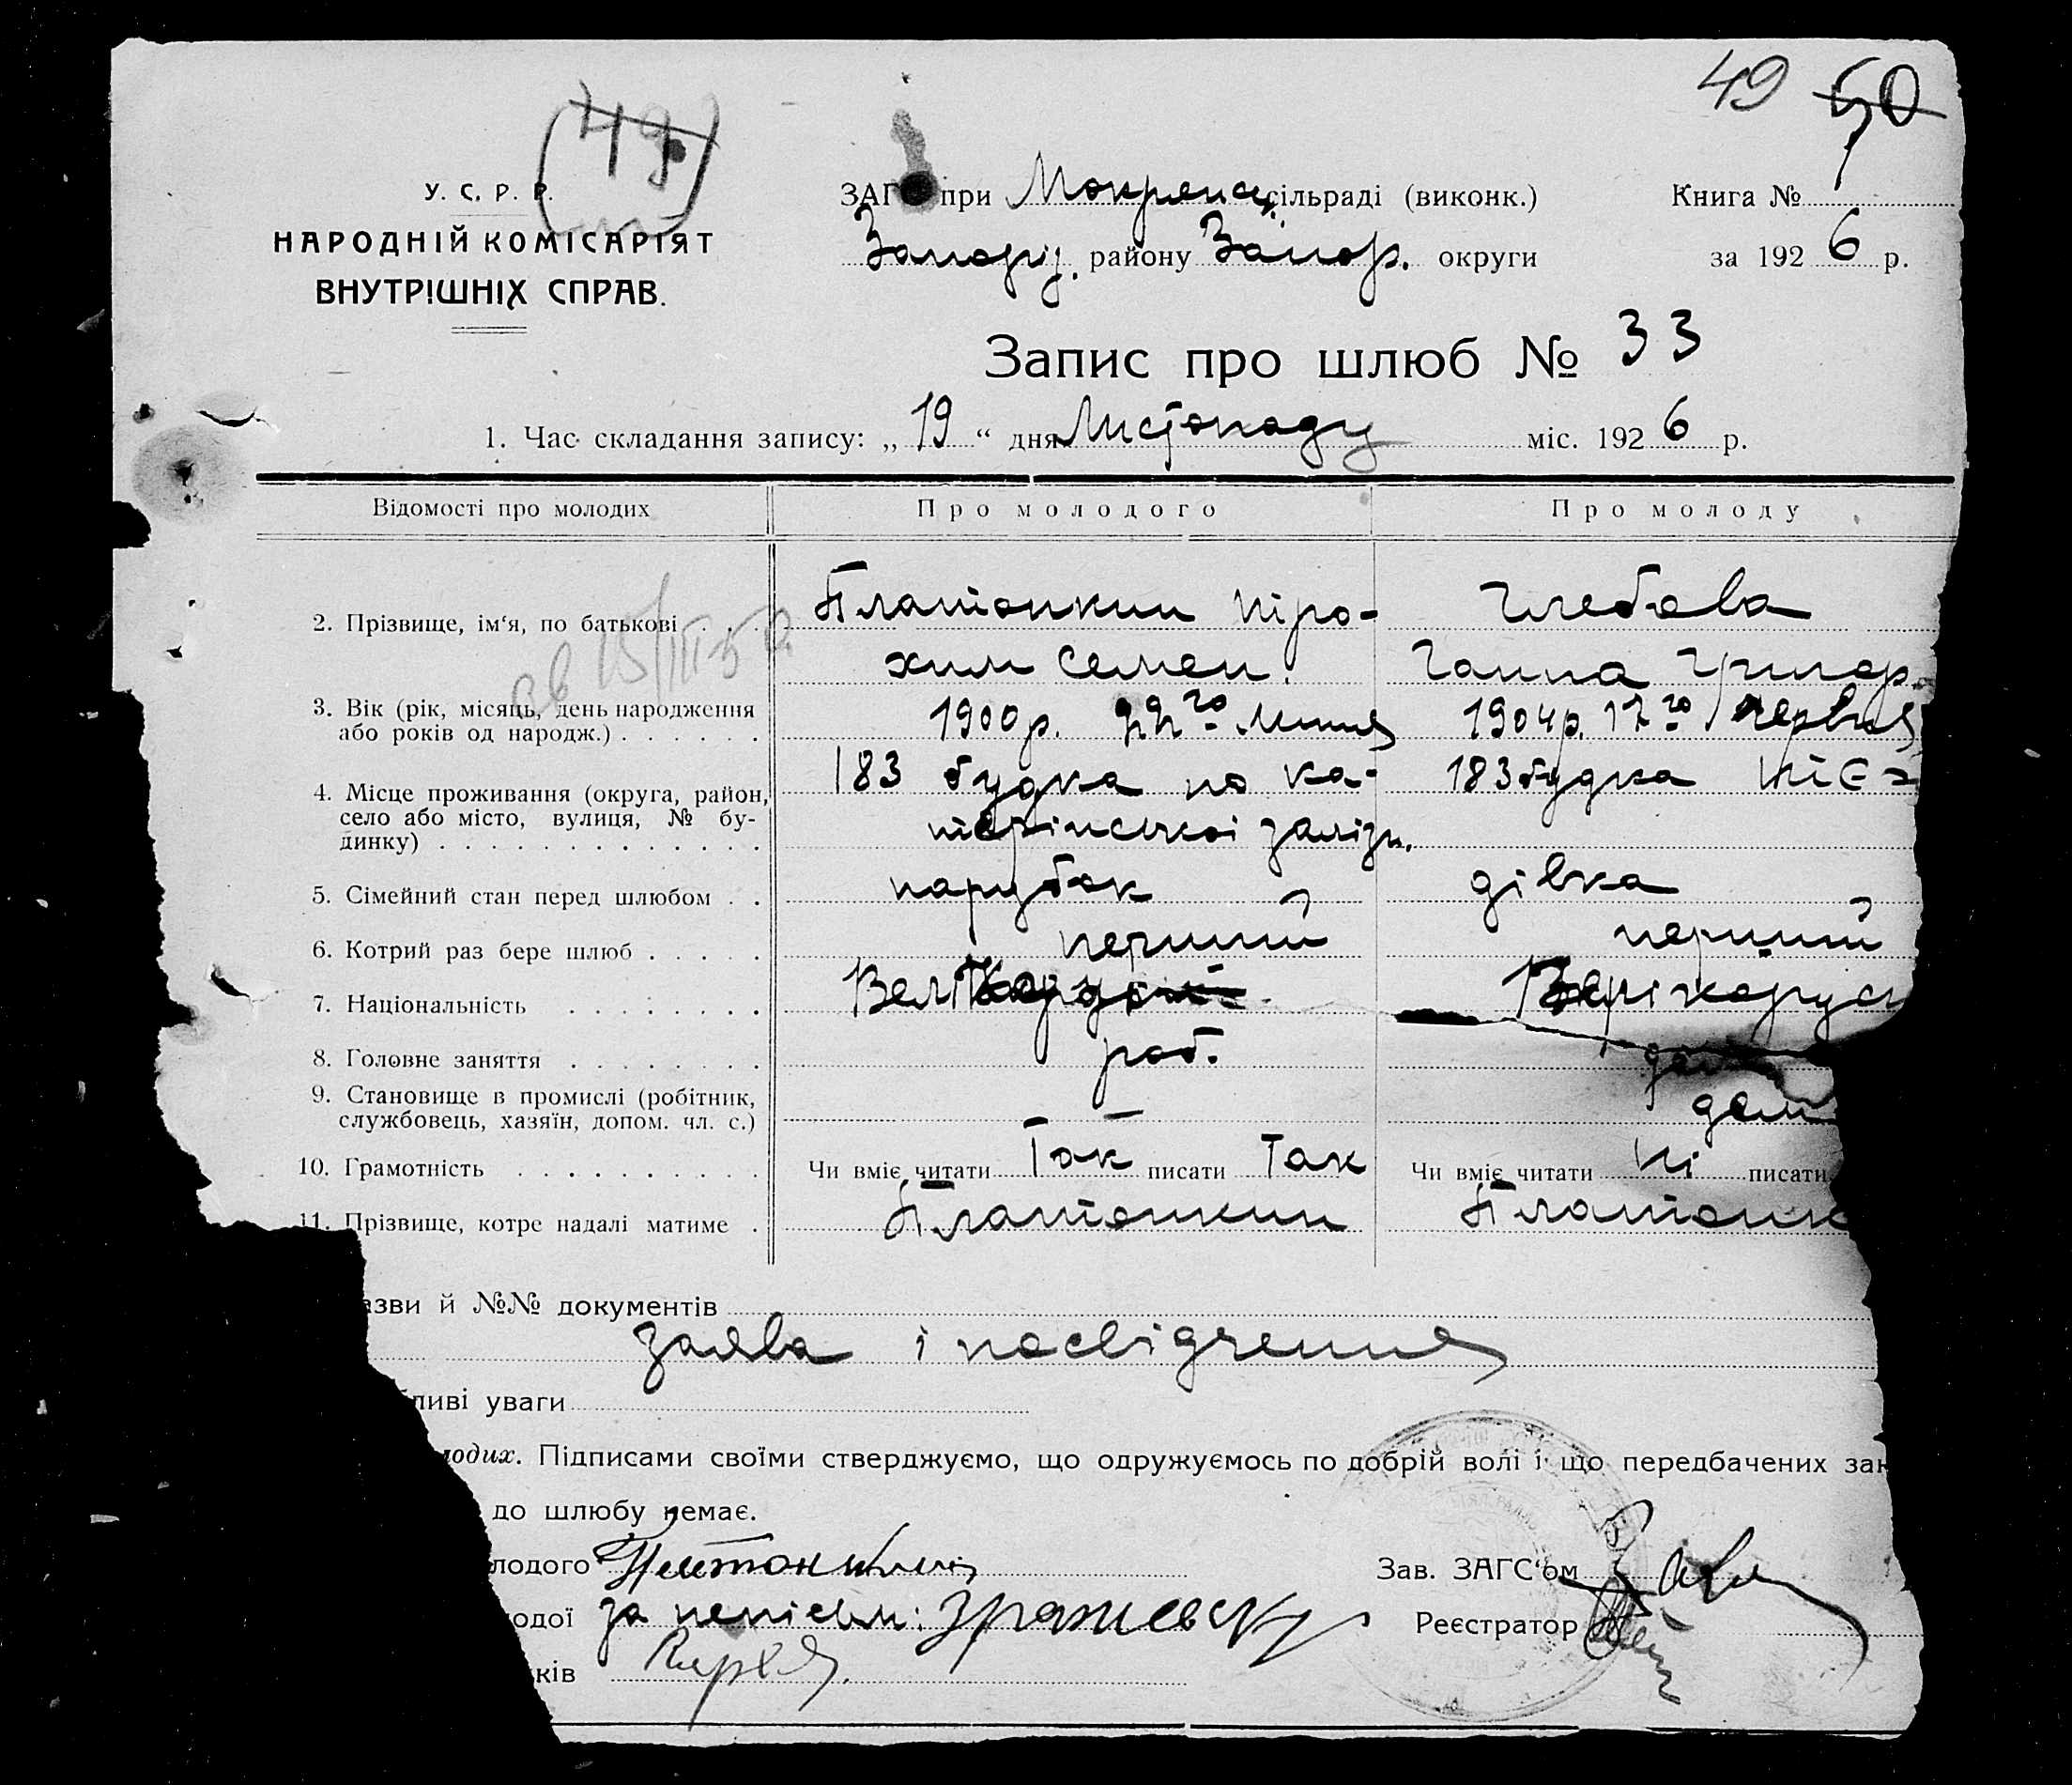 49 50
(49)
У. С. Р. Р.
НАРОДНІЙ КОМІСАРІЯТ
ВНУТРІШНІХ СПРАВ.
ЗАГС при Мокрянс. сільраді (виконк.)
Запоріз. району Запор. округи
Книга №
за 1926 р.
Запис про шлюб № 33
1. Час складання запису: „19“ дня Листопаду міс. 1926 р.
Відомості про молодих Про молодого Про молоду
2. Прізвище, ім‘я, по батькові Платонкин Тро- Глебова
хим Семен. Ганна Григор.
3. Вік (рік, місяць, день народження
або років од народж.) 1900р. 22го Липня 1904р. 17го червня
4. Місце проживання (округа, район,
село або місто, вулиця, № бу-
динку) 183 будка по Ка- 183 будка
терінської залізн.
5. Сімейний стан перед шлюбом парубок дівка
6. Котрий раз бере шлюб перший перший
7. Національність Велікорус
8. Головне заняття роб.
9. Становище в промислі (робітник,
службовець, хазяїн, допом. чл. с.) — дом
10. Грамотність Чи вміє читати Так писати Так Чи вміє читати Ні писати
11. Прізвище, котре надалі матиме Платонкин Платонк
азви й №№ документів
заява і посвідчення
ливі уваги
лодих. Підписами своїми стверджуємо, що одружуємось по добрій волі і що передбачених зак
до шлюбу немає.
лодого Платонкин Зав. ЗАГС‘ом
одої за неписьм: Реєстратор
ків